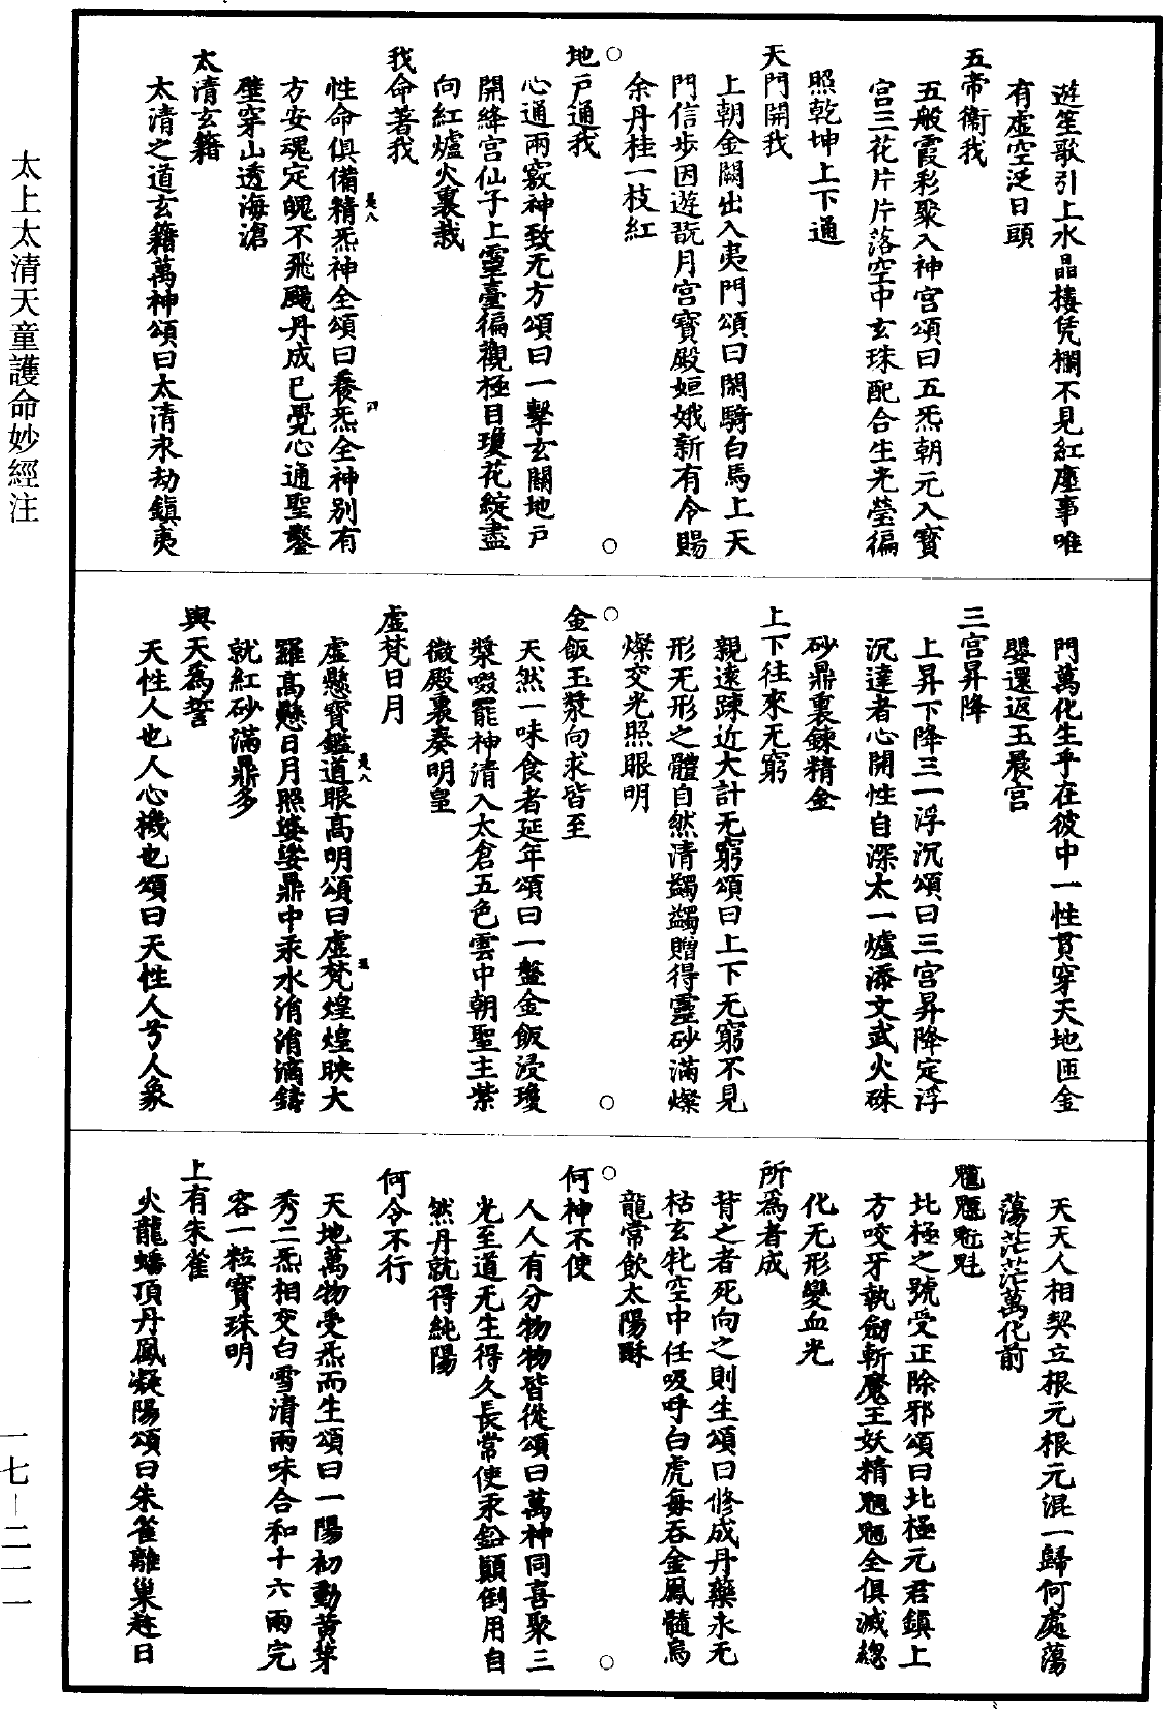 遊笙歌引上水晶樓凭欄不見紅塵事唯
有虛空泛日頭
五帝衞我
五般霞彩聚入神宮頌曰五炁朝元入寳
宮三花片片落空中玄珠配合生光瑩徧
照乾坤上下通
天門開我
上朝金闕出入夷門頌曰閑騎白馬上天
門信步因遊翫月宮寳殿姮娥新有令賜
余丹桂一枝紅
地戸通我
心通兩竅神致无方頌曰一擊玄關地戸
開絳宮仙子上靈臺徧觀極目瓊花綻盡
向紅爐火裏栽
我命著我
性命俱備精炁神全頌曰養炁全神别有
方安魂定魄不飛颺丹成已覺心通聖鑿
壁穿山透海滄
太清玄籍
太清之道玄籍萬神頌曰太清永劫鎮夷
門萬化生乎在彼中一性貫穿天地匝金
嬰還返玉晨宮
三宮昇降
上昇下降三一浮沉頌曰三宮昇降定浮
沉達者心開性自深太一爐添文武火硃
砂鼎裏鍊精金
上下往來无窮
親逺踈近大計无窮頌曰上下无窮不見
形无形之體自然清蠲蠲贈得靈砂滿燦
燦交光照眼明
金飯玉漿向求皆至
天然一味食者延年頌曰一盤金飯浸瓊
漿啜罷神清入太倉五色雲中朝聖主紫
微殿裏奏明皇
虛梵日月
虛懸寳鑑道眼高明頌曰虛梵煌煌映大
羅高懸日月照婆娑鼎中汞水涓涓滴鑄
就紅砂滿鼎多
與天為誓
天性人也人心機也頌曰天性人兮人象
天天人相契立根元根元混一歸何處蕩
蕩茫茫萬化前
北極之號受正除邪頌曰北極元君鎮上
方咬牙執劒斬魔王妖精全俱滅總
化无形變血光
所為者成
背之者死向之則生頌曰修成丹藥永无
枯玄牝空中任吸呼白虎每吞金鳳髓烏
龍常飲太陽酥
何神不使
人人有分物物皆從頌曰萬神同喜聚三
光至道无生得久長常使汞鉛顛倒用自
然丹就得純陽
何令不行
天地萬物受炁而生頌曰一陽初動黃芽
秀二炁相交白雪清兩味合和十六兩完
容一粒寳珠明
上有朱雀
火龍蟠頂丹鳳凝陽頌曰朱雀離巢趂日
太上太清天童護命妙經注
一七—二一一